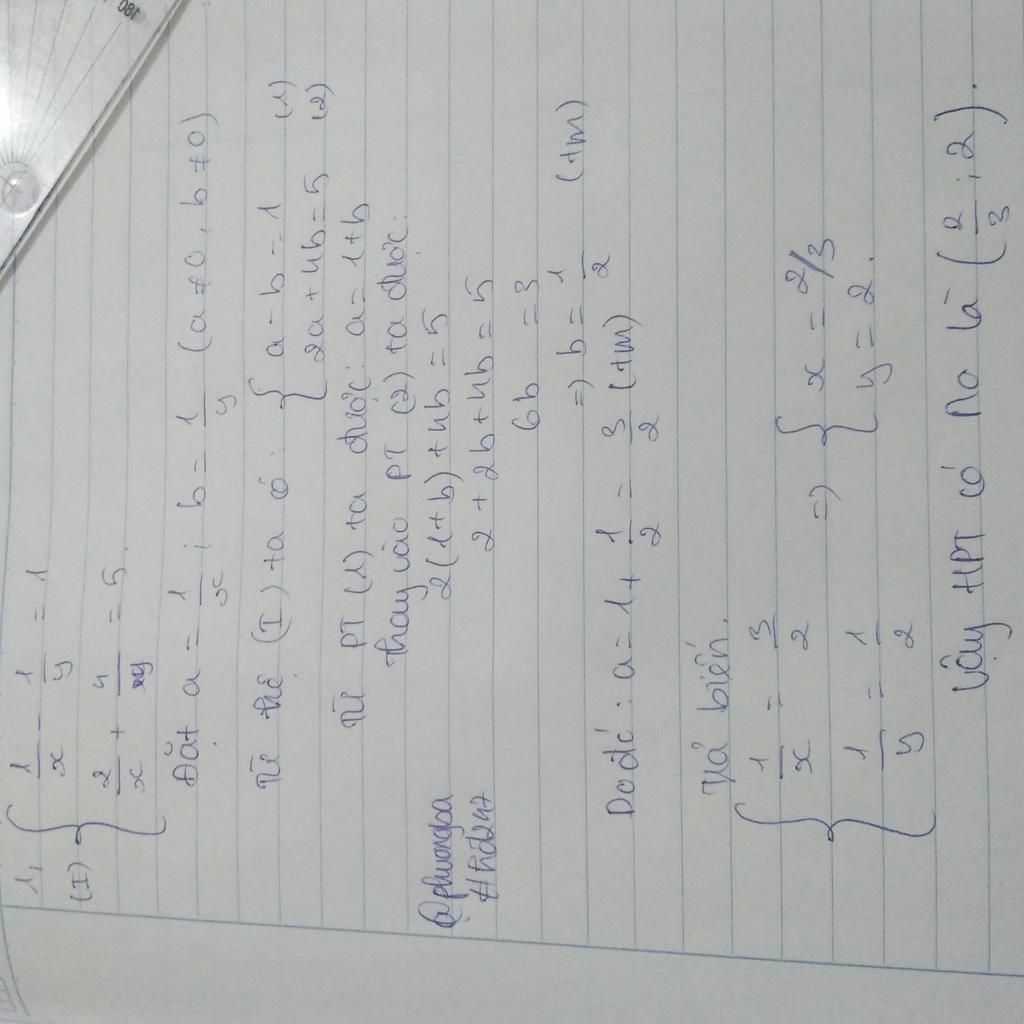 1, 1/x - 1/y = 1
(I) 2/x + 4/y = 5.
Đặt a = 1/x ; b = 1/y (a ≠ 0, b ≠ 0)
Từ hệ (I) ta có: { a - b = 1 (1)
2a + 4b = 5 (2)
Từ PT (1) ta được: a = 1+b
Thay vào PT (2) ta được:
2(1+b) + 4b = 5
2 + 2b + 4b = 5
6b = 3
=> b = 1/2 (tm)
@phuongba
Do đó: a = 1 + 1/2 = 3/2 (tm)
Trả biến.
{ 1/x = 3/2 => { x = 2/3
1/y = 1/2 y = 2.
Vậy HPT có no là (2/3 ; 2).
180